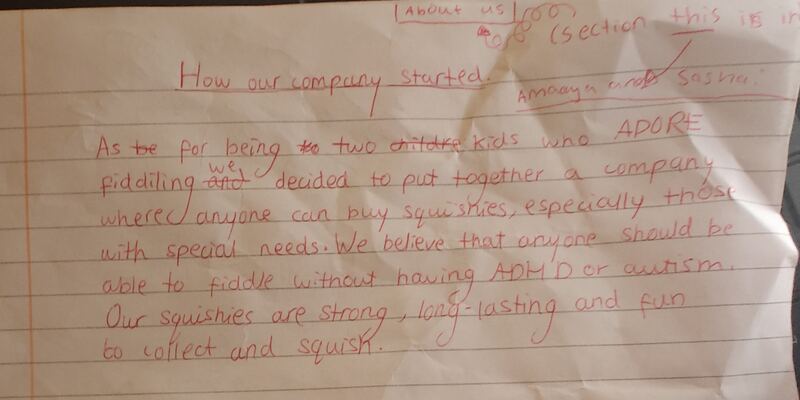 About us
(section this is in
How our company started.
Amaaya and Sasha.
As be for being to two childre kids who ADORE
fiddiling and we decided to put together a company
where anyone can buy squishies, especially those
with special needs. We believe that anyone should be
able to fiddle without having ADHD or autism.
Our squishies are strong, long-lasting and fun
to collect and squish.